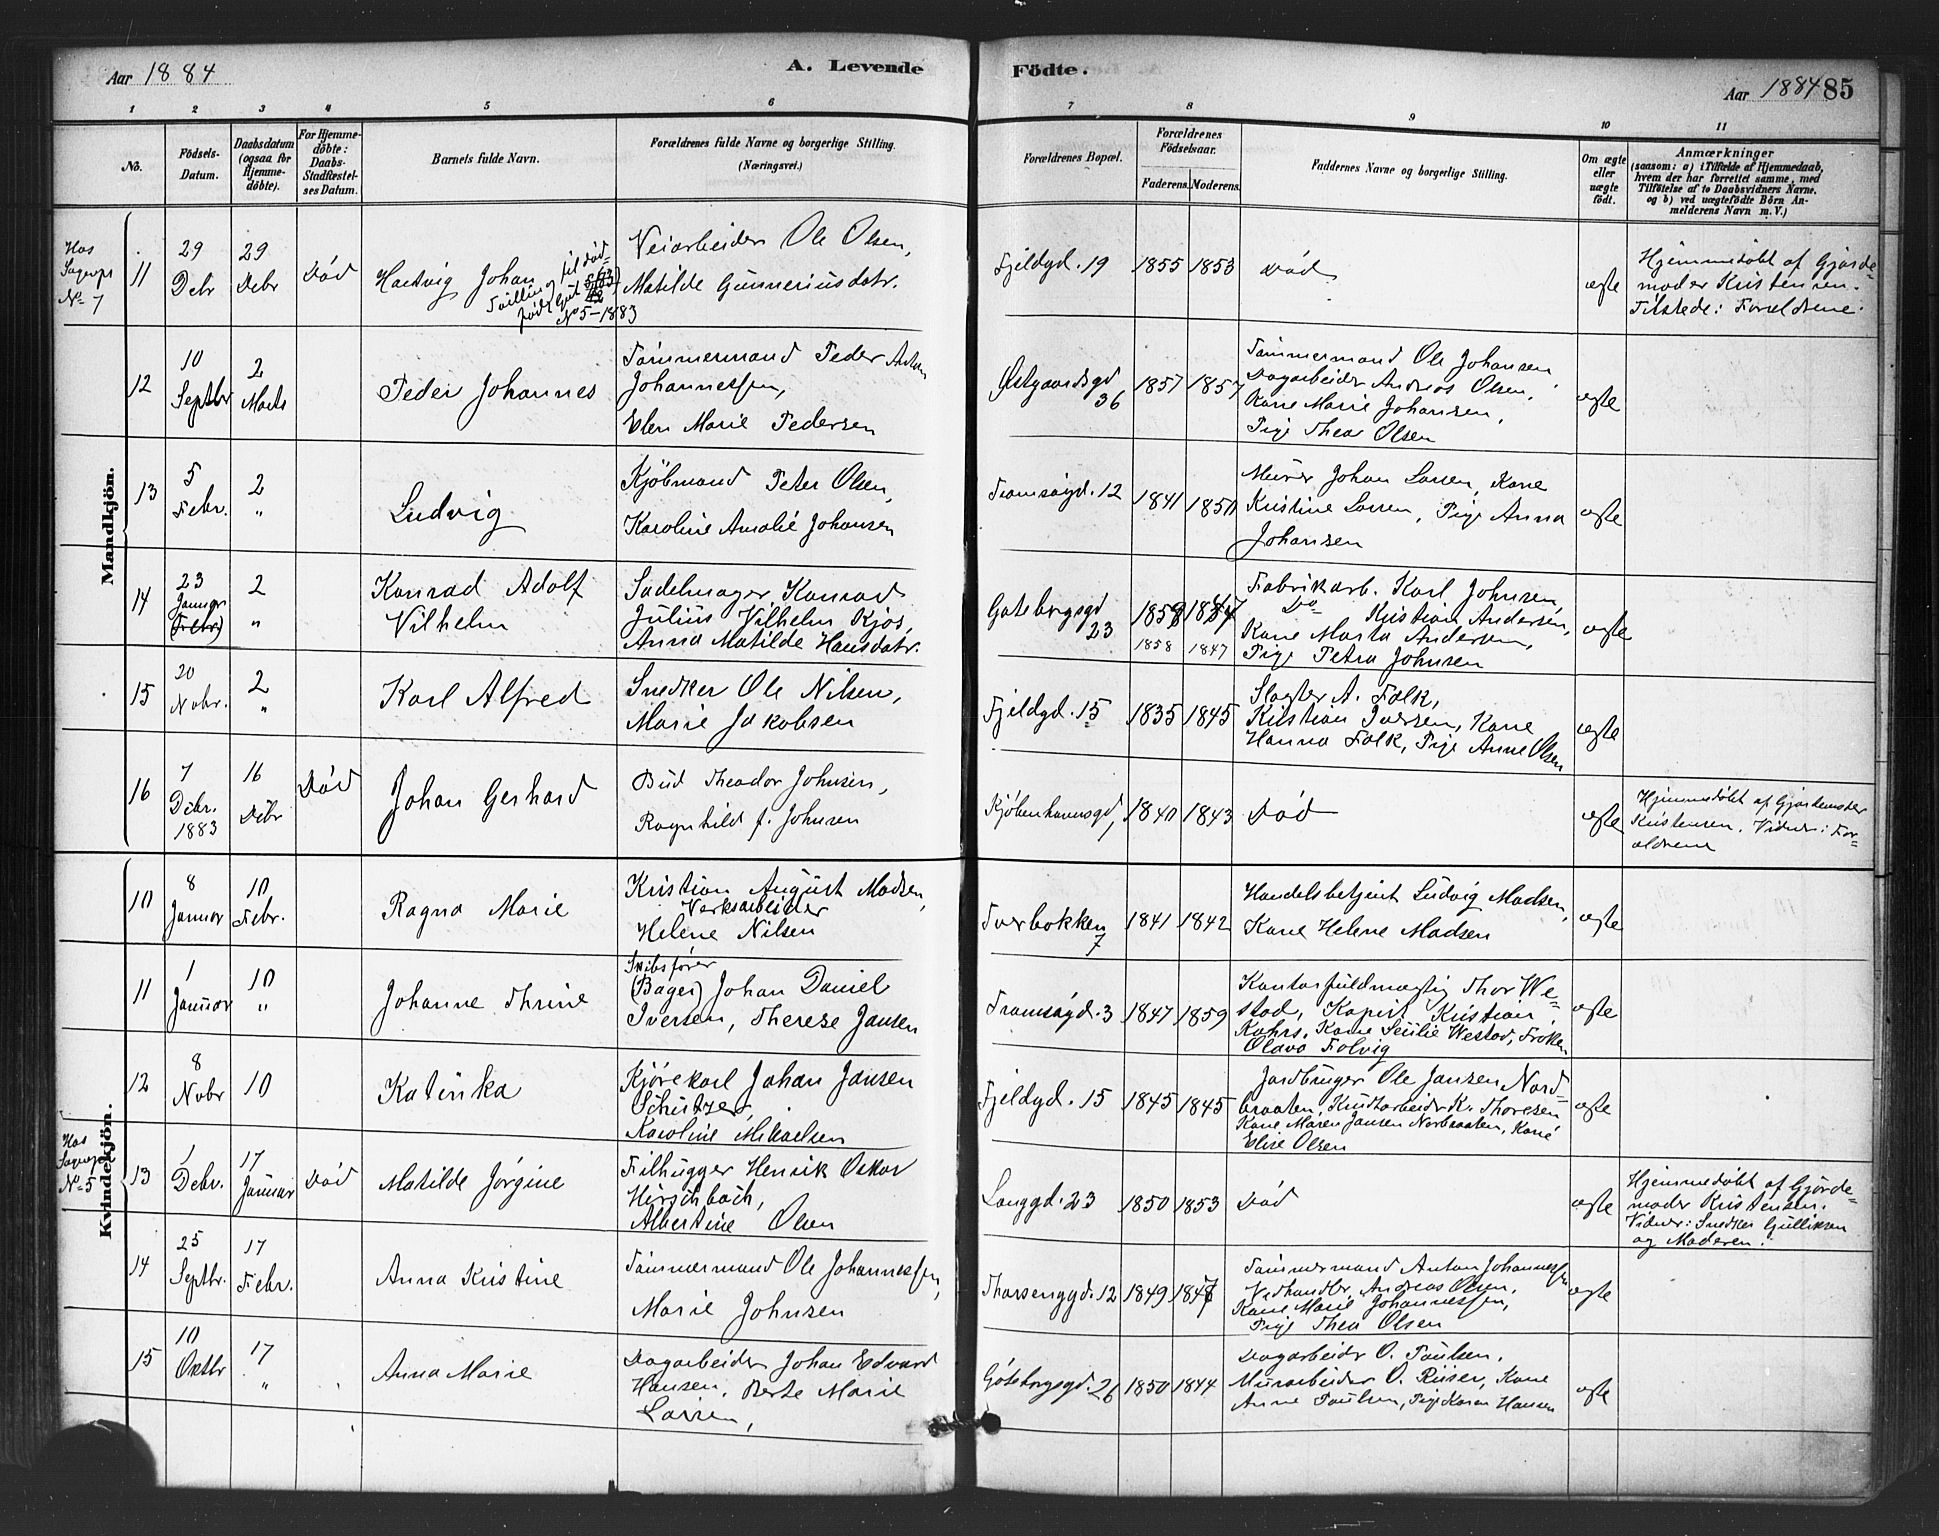 Aar 1884
A. Levende
Födte.
Aar 1884 85
1 2 3 4 5 6 7 8 9 10 11
No.
Födsels-
Datum.
Daabsdatum
(ogsaa for
Hjemme-
döbte).
For Hjemme-
döbte:
Daabs-
Stadfæstel-
ses Datum.
Barnets fulde Navn.
Forældrenes fulde Navne og borgerlige Stilling.
(Næringsvei.)
Forældrenes Bopæl.
Forældrenes
Födselsaar.
Faderens. Moderens.
Faddernes Navne og borgerlige Stilling.
Om ægte
eller
uægte
födt.
Anmærkninger
(saasom: a) i Tilfælde af Hjemmedaab,
hvem der har forrettet samme, med
Tilföielse af to Daabsvidners Navne.
og b) ved uægtefödte Börn An-
melderens Navn m. V.)
Mandkjön.
Hos
Sogvpr
No 7
11
29
Debr
29
Debr
Död
Hartvig Johan
Tvilling til död-
född Gut
No 5-1883
Veiarbeider Ole Olsen,
Matilde Gunneriusdatr.
Fjeldgd. 19
1855
1853
Död
ægte
Hjemmedöbt af Gjorde-
moder Kristensen.
Tilstede: Foreldrene.
12
10
Septbr
2
Marts
Peder Johannes
Tömmermand Peder Anton
Johannessen,
Elen Marie Pedersen
Östgaardsgd
36
1857
1857
Tömmermand Ole Johansen,
Dagarbeider Andreas Olsen,
Kone Marie Johansen,
Pige Thea Olsen
ægte
13
5
Febr.
2
"
Ludvig
Kjöbmand Peter Olsen,
Karoline Amalie Johansen
Tromsögd. 12
1841
1850
Murer Johan Larsen, Kone
Kristine Larsen, Pige Anna
Johansen
ægte
14
23
Januar
(Febr.)
2
"
Konrad Adolf
Vilhelm
Sadelmager Konrad
Julius Vilhelm Kjös,
Anna Matilde Hansdatr.
Göteborgsgd
23
1858
1847
1858
1847
Fabrikarb. Karl Johnsen,
Do Kristian Andersen,
Kone Marta Andersen,
Pige Petra Johnsen
ægte
15
20
Nobr.
2
"
Karl Alfred
Snedker Ole Nilsen,
Marie Jakobsen
Fjeldgd. 15
1835
1845
Slagter A. Falk,
Kristian Iversen, Kone
Hanna Falk, Pige Anne Olsen
ægte
16
7
Debr.
1883
16
Debr
Död
Johan Gerhard
Bud Theodor Johnsen,
Ragnhild f. Johnsen
Kjöbenhavnsgd
1
1840
1843
Död
ægte
Hjemmedöbt af Gjordemoder
Kristensen. Vidner: For-
ældrene
Kvindekjön.
10
8
Januar
10
Febr.
Ragna Marie
Kristian August Madsen,
Verksarbeider
Helene Nilsen
Tverbakken
7
1841
1842
Handelsbetjent Ludvig Madsen,
Kone Helene Madsen
ægte
11
1
Januar
10
"
Johanne Thrine
Skibsförer
(Bager) Johan Daniel
Iversen, Therese Jansen
Tromsögd. 3
1847
1859
Kontorfuldmægtig Thor We-
stad, Kapit Kristian
Rohrs, Kone Secilie Westad, Fröken
Olava Folvig
ægte
12
8
Nobr
10
Katinka
Kjörekarl Johan Jansen
Schutzer,
Karoline Mikaelsen
Fjeldgd. 15
1845
1845
Jordbruger Ole Jansen Nord-
braaten, Krudtarbeider K. Thoresen
Kone Maren Jansen Norbraaten, Kone
Elise Olsen
ægte
Hos
Sogvpr
No 5
13
1
Debr.
17
Januar
Död
Matilde Jörgine
Filhugger Henrik Oskar
Hirschbach,
Albertine Olsen
Langgd. 23
1850
1853
Död
ægte
Hjemmedöbt af Gjorde-
moder Kristensen.
Vidner: Snedker Gulliksen
og Moderen.
14
25
Septbr.
17
Febr.
Anna Kristine
Tömmermand Ole Johannessen,
Marie Johnsen
Thorsenggd. 12
1849
1847
Tömmermand Anton Johannessen
Vedhandler Andreas Olsen,
Kone Marie Johannessen,
Pige Thea Olsen
ægte
15
10
Oktbr
17
"
Anna Marie
Dagarbeider Johan Edvard
Hansen, Berte Marie
Larsen,
Göteborgsgd. 26
1850
1844
Dagarbeider O. Paulsen,
Murarbeider O. Riiser, Kone
Anne Paulsen, Pige Karen Hansen
ægte